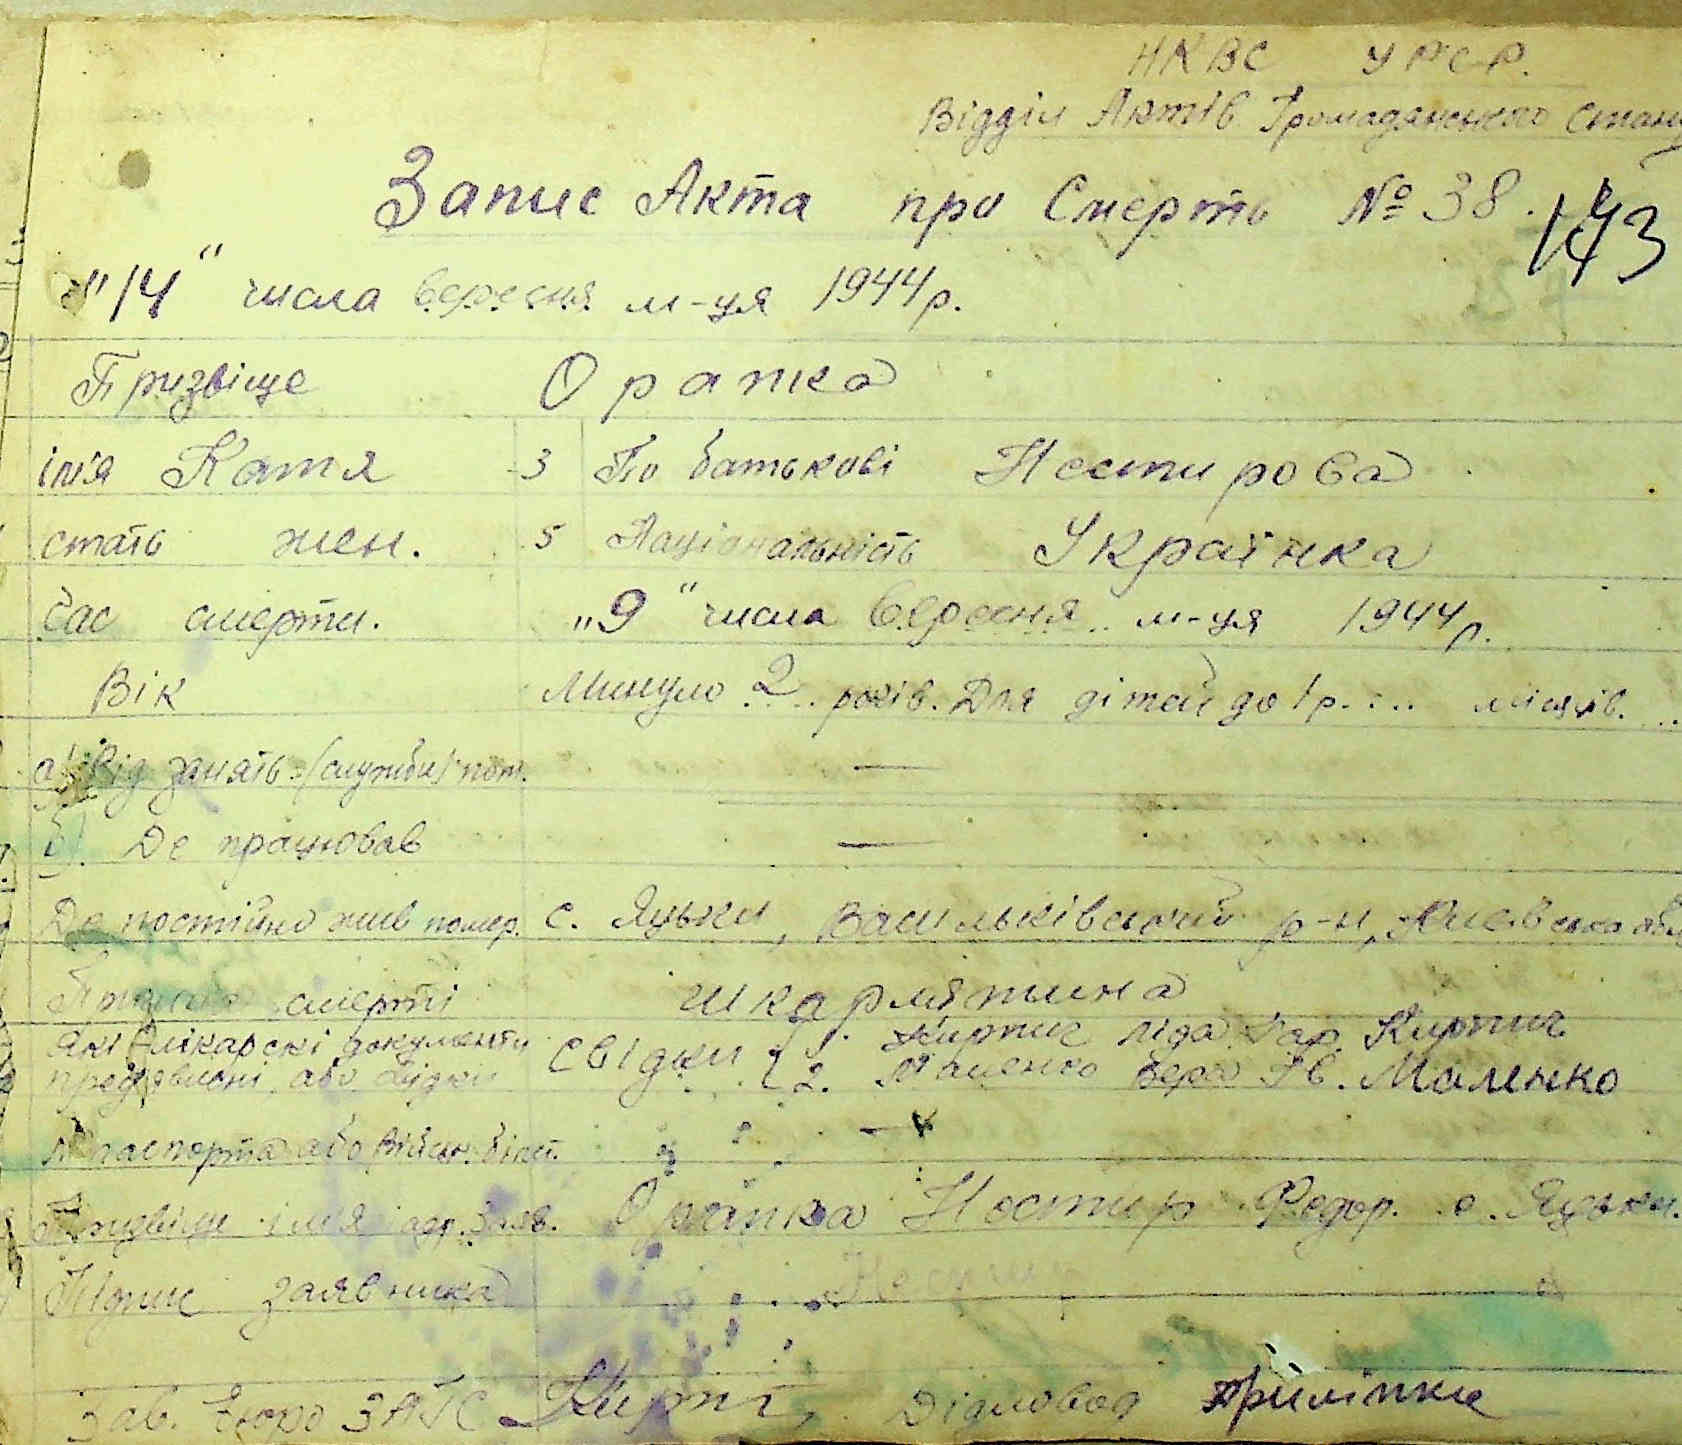 НКВС УРСР.
Відділ Актів Громадянського Стану
Запис Акта про Смерть № 38.
143
"14" числа вересня м-ця 1944 р.
Призвіще Орапка
ім'я Катя 3 По батькові Нестирова
стать жен. 5 Національність Українка
Час смерти. "9" числа вересня м-ця 1944 р.
Вік Минуло 2 років. Для дітей до 1 р. ... місяців. ...
а) Від занять (служби) пом. —
б). Де працював —
Де постійно жив помер. с. Яцьки, Васильківський р-н, Київська обл
Причина смерті шкарлятина
Які лікарскі документи
предявлені або свідки Свідки { 1. Кирпич Ліда Кирпич
2. Маленко Вера Ів. Маленко
№ паспорта або військ. біл. —
Призвіще імя адр. заяв. Орапка Нестир Федор. с. Яцьки.
Підпис заявника
Зав. Бюро ЗАГС Діловод